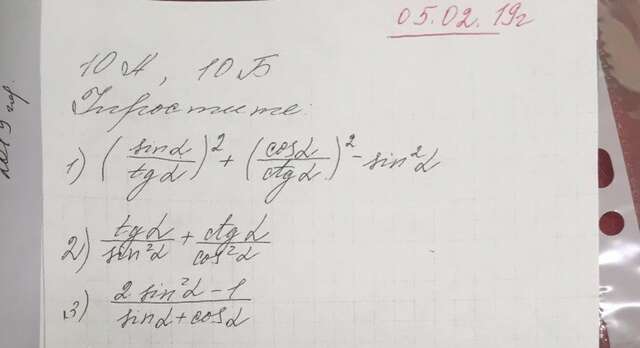 05.02.19г
10 А, 10 Б
Упростите:
1) (sinα/tgα)² + (cosα/ctgα)² - sin²α
2) tgα/sin²α + ctgα/cos²α
3) 2 sin²α - 1/sinα + cosα